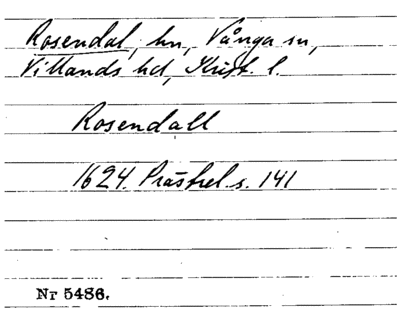 Rosendal, hn, Vånga sn,
Villands hd, Krist. l.
Rosendall
1624. Prästrel. s. 141
Nr 5486.